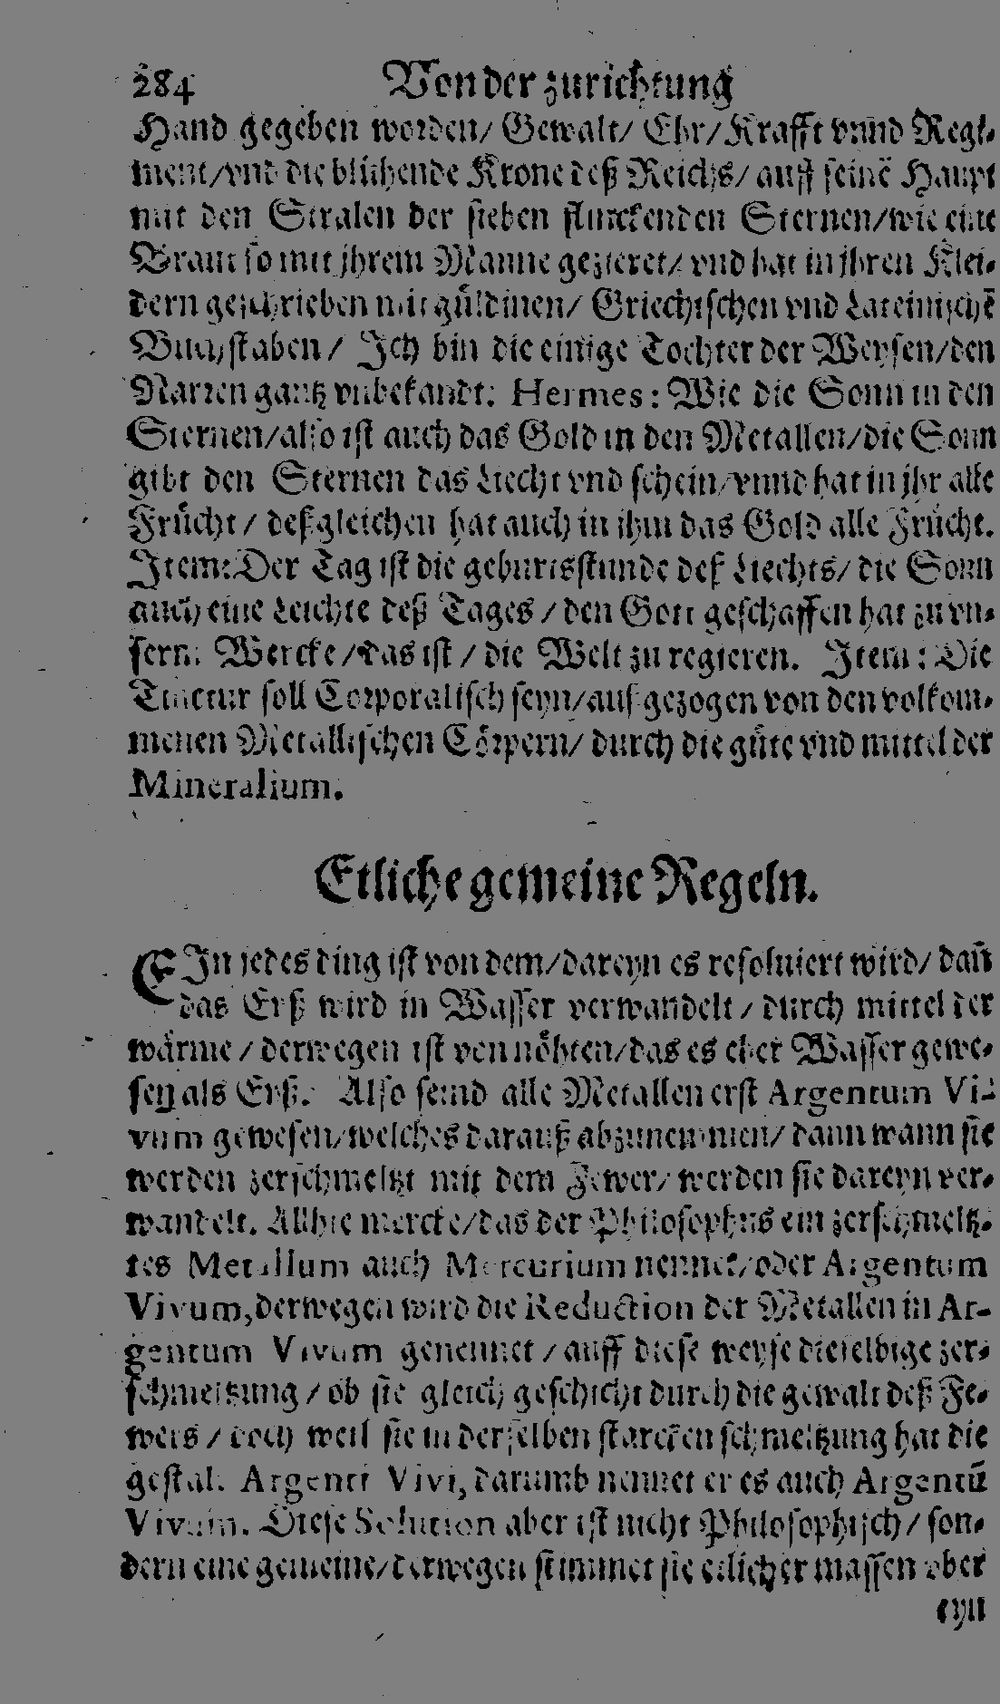 284 Von der zurichtung
Hand gegeben worden/ Gewalt/ Ehr/ Krafft vnnd Regi-
ment/vnd die blühende Krone deß Reichs/ auff seinē Haupt
mit den Stralen der sieben flinckenden Sternen/wie eine
Braut so mit jhrem Manne gezieret/ vnd hat in jhren Klei-
dern geschrieben mit güldinen/ Griechischen vnd Lateinischē
Buchstaben/ Jch bin die einige Tochter der Weysen/den
Narren gantz vnbekandt: Hermes: Wie die Sonn in den
Sternen/also ist auch das Gold in den Metallen/die Sonn
gibt den Sternen das Liecht vnd schein/vnnd hat in jhr alle
Frücht/ deßgleichen hat auch in ihm das Gold alle Frücht.
Jtem: Der Tag ist die geburtsstunde deß Liechts/ die Sonn
auch eine Leichte deß Tages/ den Gott geschaffen hat zu vn-
serm Wercke/das ist/ die Welt zu regieren. Jtem: Die
Tinctur soll Corporalisch seyn/außgezogen von den volkom-
menen Metallischen Cörpern/ durch die güte vnd mittel der
Mineralium.
Etliche gemeine Regeln.
EJn jedes ding ist von dem/dareyn es resoluiert wird/ dañ
das Eyß wird in Wasser verwandelt/ durch mittel der
wärme/ derwegen ist von nöhten/das es eher Wasser gewe-
sen als Eyß. Also seind alle Metallen erst Argentum Vi-
vum gewesen/welches darauß abzunemmen/ dann wann sie
werden zerschmeltzt mit dem Fewer/ werden sie dareyn ver-
wandelt. Allhie mercke/das der Philosophus ein zerschmeltz-
tes Metallum auch Mercurium nennet/oder Argentum
Vivum,derwegen wird die Reduction der Metallen in Ar-
gentum Vivum genennet/ auff diese weyse dieselbige zer-
schmeltzung/ ob sie gleich geschicht durch die gewalt deß Fe-
wers/ doch weil sie in derselben starcken schmeltzung hat die
gestalt Argenti Vivi, darumb nennet er es auch Argentū
Vivum. Diese Solution aber ist nicht Philosophisch/ son-
dern eine gemeine/derwegen stimmet sie etlicher massen vber
eyn